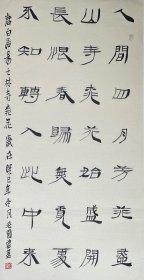 人間四月芳菲盡
山寺桃花始盛開
長恨春歸無覓處
不知轉入此中來
唐白居易大林寺桃花